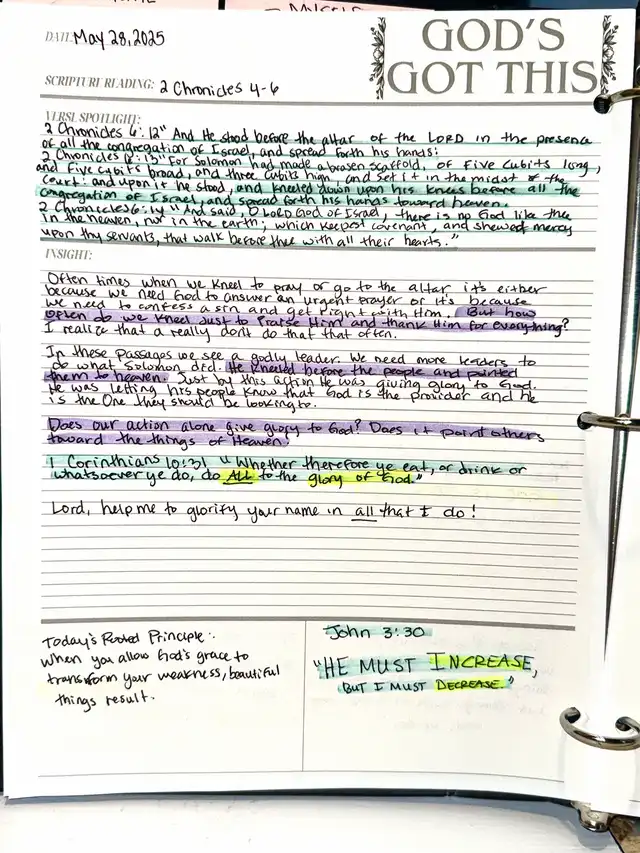 GOD'S
GOT THIS
DATE: May 28, 2025
SCRIPTURE READING: 2 Chronicles 4-6
VERSE SPOTLIGHT:
2 Chronicles 6:12" And He stood before the altar of the LORD in the presence
of all the congregation of Israel, and spread forth his hands:
2 Chronicles 6:13" For Solomon had made a brasen scaffold, of five cubits long,
and five cubits broad, and three cubits high, and set it in the midst of the
court: and upon it he stood, and kneeled down upon his knees before all the
congregation of Israel, and spread forth his hands toward heaven.
2 Chronicles 6:14" And said, O LORD God of Israel, there is no God like thee
in the heaven, nor in the earth; which keepest covenant, and shewed mercy
upon thy servants, that walk before thee with all their hearts."
INSIGHT:
Often times when we kneel to pray or go to the altar it's either
because we need God to answer an urgent prayer or it's because
we need to confess a sin and get right with Him. But how
often do we kneel just to Praise Him and thank Him for everything?
I realize that a really don't do that that often.
In these passages we see a godly leader. We need more leaders to
do what Solomon did. He kneeled before the people and pointed
them to heaven. Just by this action He was giving glory to God.
He was letting his people know that God is the provider and He
is the One they should be looking to.
Does our action alone give glory to God? Does it point others
toward the things of Heaven?
1 Corinthians 10:31 "Whether therefore ye eat, or drink or
whatsoever ye do, do ALL to the glory of God."
Lord, help me to glorify your name in all that I do!
Today's Rooted Principle:
When you allow God's grace to
transform your weakness, beautiful
things result.
John 3:30
"HE MUST INCREASE,
BUT I MUST DECREASE."